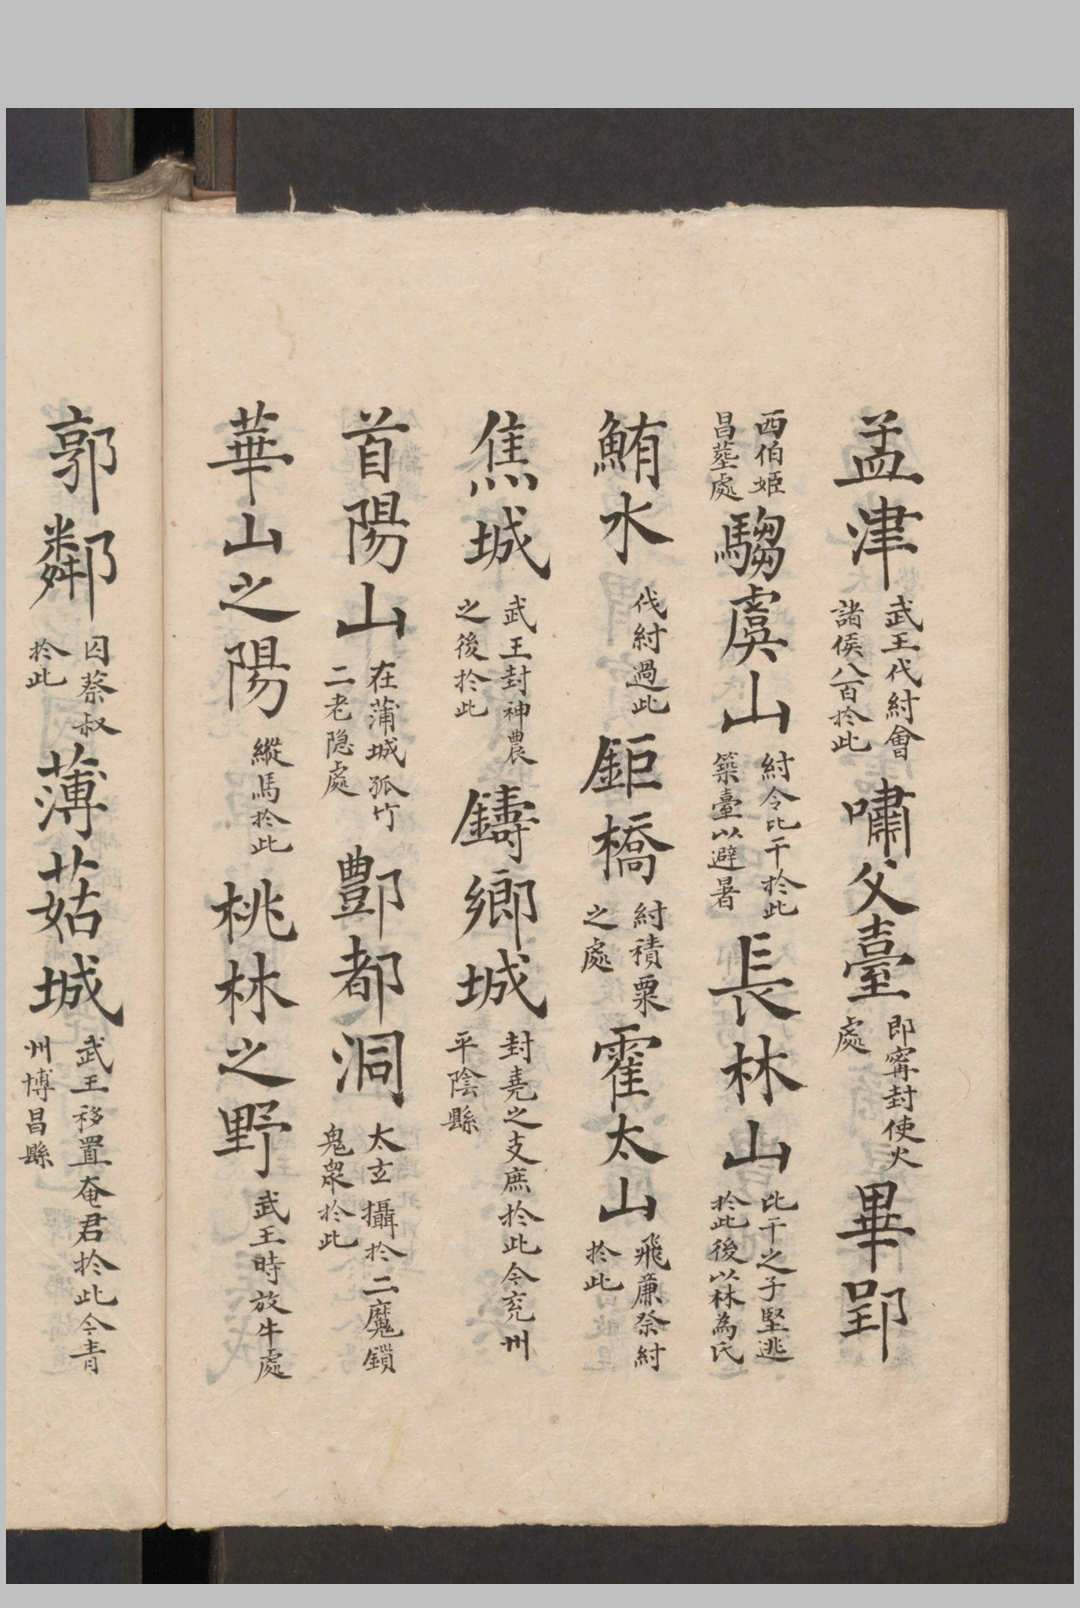 孟津武王代紂會諸侯八百扵此嘯父臺即甯封使火處畢郢
西伯姬昌塟處騶虞山紂令比干扵此築臺以避暑長林山比干之子堅逃扵此後以林為氏
鮪水伐紂過此鉅橋紂積粟之處霍太山飛蔗祭紂扵此
焦城武王封神農之後扵此鑄鄉城封堯之支庶扵此今兖州平陰縣
首陽山在蒲城孤竹二老隐處酆都洞太玄攝扵二魔鎖鬼衆扵此
華山之陽縱馬扵此桃林之野武王時放牛處
郭鄰囚蔡叔扵此薄菇城武王移置奄君扵此今青州博昌縣